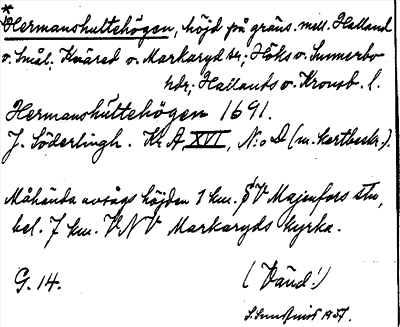 *
Hermanshultehögen, höjd på gräns. mell. Halland
o. Smål; Knäred o. Markaryd snr; Höks o. Sunnerbo
hdr; Hallands o. Kronob. l.
Hermanshúltehögen 1691.
J. Söderlingh. Kr A XVI, N:o D (m. kartbeskr.).
Måhända avsågs höjden 1 km. V Majenfors stn,
bel. 7 km. VNV Markaryds kyrka.
G. 14. (Vänd!)
1937.